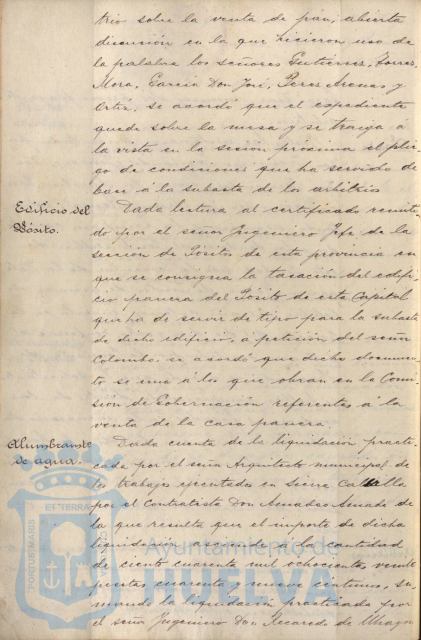 trio sobre la venta de pan; abierta
discusión en la que hicieron uso de
la palabra los señores Gutierrez, Torres,
Mora, García Don José, Perez Arenas y
Ortiz, se acordó que el expediente
quede sobre la mesa y se traiga á
la vista en la sesión próxima el plie-
go de condiciones que ha servido de
base á la subasta de los arbitrios
Edificio del
Pósito.
Dada lectura al certificado remiti-
do por el señor Ingeniero Jefe de la
sección de Pósitos de esta provincia en
que se consigna la tasación del edifi-
cio panera del Pósito de esta Capital
que ha de servir de tipo para la subasta
de dicho edificio, a petición del señor
Colombo, se acordó que dicho documen-
to se una á los que obran en la Comi-
sión de Gobernación referentes á la
venta de la casa panera.
Alumbramto
de agua.
Dada cuenta de la liquidación practi-
cada por el señor Arquitecto municipal de
los trabajos ejecutados en
por el Contratista Don Amadeo Amado de
la que resulta que el importe de dicha
liquidación asciende a la cantidad
de ciento cuarenta mil ochocientas veinte
pesetas cuarenta y nueve céntimos, su-
mando la liquidación practicada por
el señor Ingeniero Don Recaredo de Uhagon
PORTUS MARIS ET TERRAE
Ayuntamiento de
HUELVA